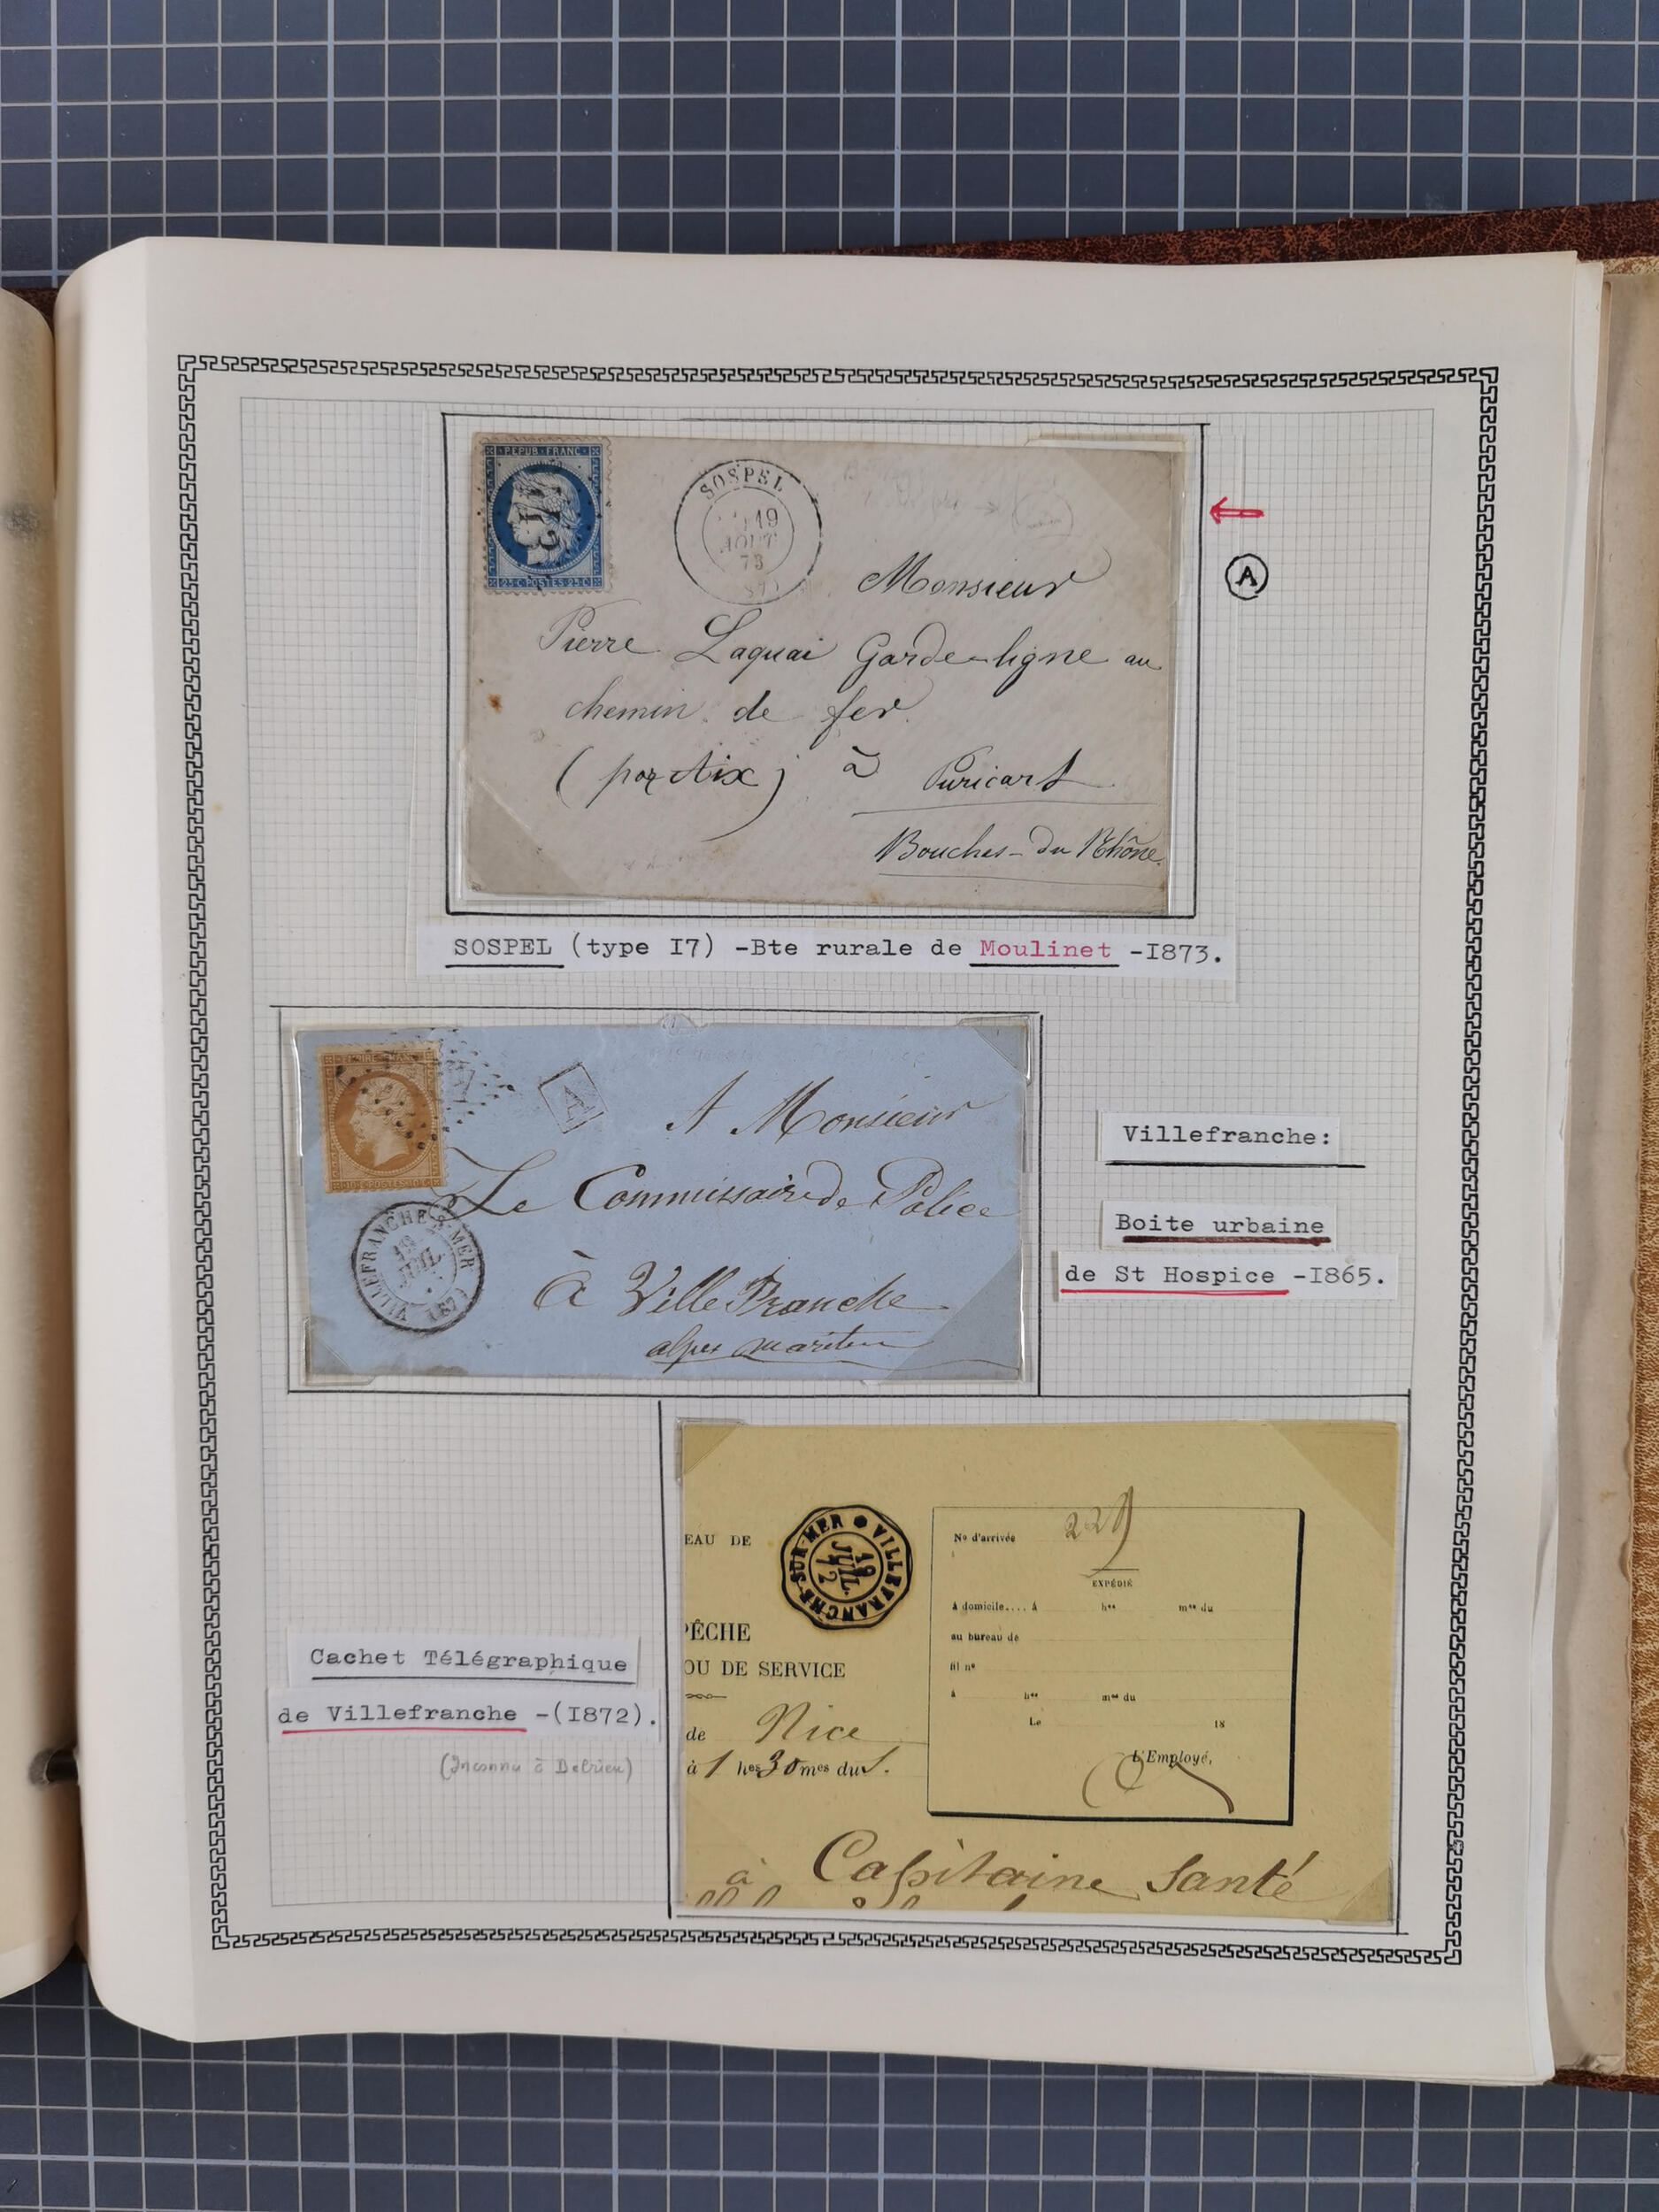 REPUB·FRANC·
25·C·POSTES·25·C
SOSPEL
19
AOUT
73
Monsieur
Pierre Laquai Garde-ligne au
chemin de fer
(par Aix) à Puricart
Bouches-du Rhône
A
SOSPEL (type I7) -Bte rurale de Moulinet -I873.
EMPIRE FRANC
10·C·POSTES·10·C
A Monsieur
Le Commissaire de Police
à Ville Franche
alpes maritim
VILLEFRANCHE-S-MER
Villefranche:
Boite urbaine
de St Hospice -I865.
EAU DE
VILLEFRANCHE-SUR-MER
19
JUIL.
72
PÊCHE
OU DE SERVICE
de Nice
à 1 hes 30 mes du S.
No d'arrivée 229
EXPÉDIÉ
à domicile.... à hes mes du
au bureau de
fil no
à hes mes du
Le 18
L'Employé,
à Capitaine Santé
Cachet Télégraphique
de Villefranche -(I872).
(Inconnu à Delrieu)